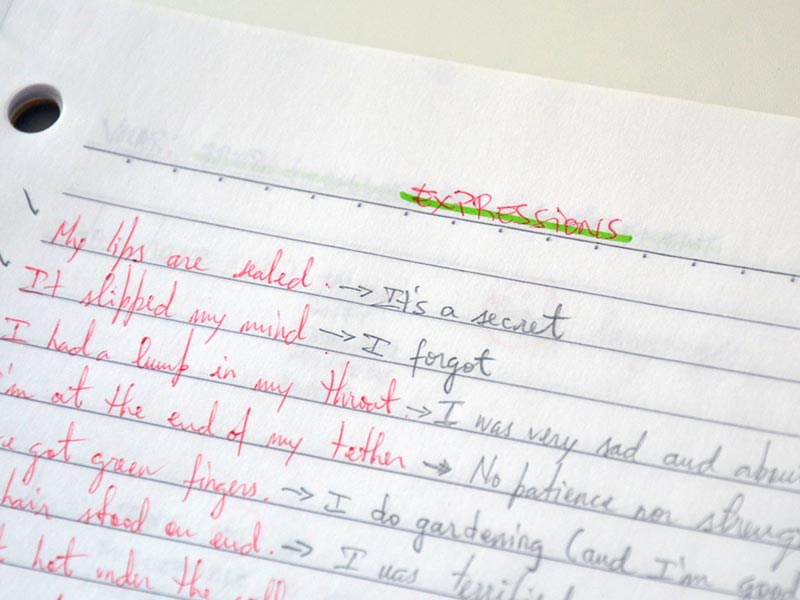 EXPRESSIONS
My lips are sealed. → It's a secret
It slipped my mind → I forgot
I had a lump in my throat. → I was very sad and
I'm at the end of my tether → No patience nor
got green fingers. → I do gardening (and I'm good
hair stood on end. → I was
hot under the